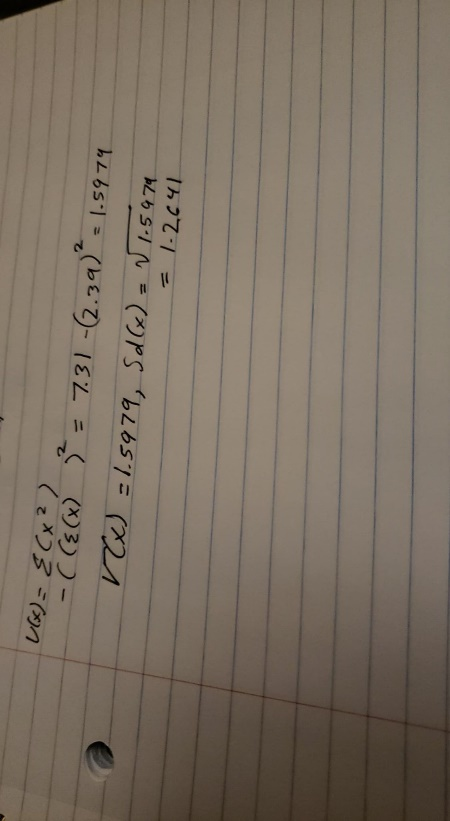 V(x) = Σ(x²)
- ((Σ(x) )² = 7.31 - (2.39)² = 1.5979
V(x) = 1.5979, Sd(x) = √1.5979
= 1.2641